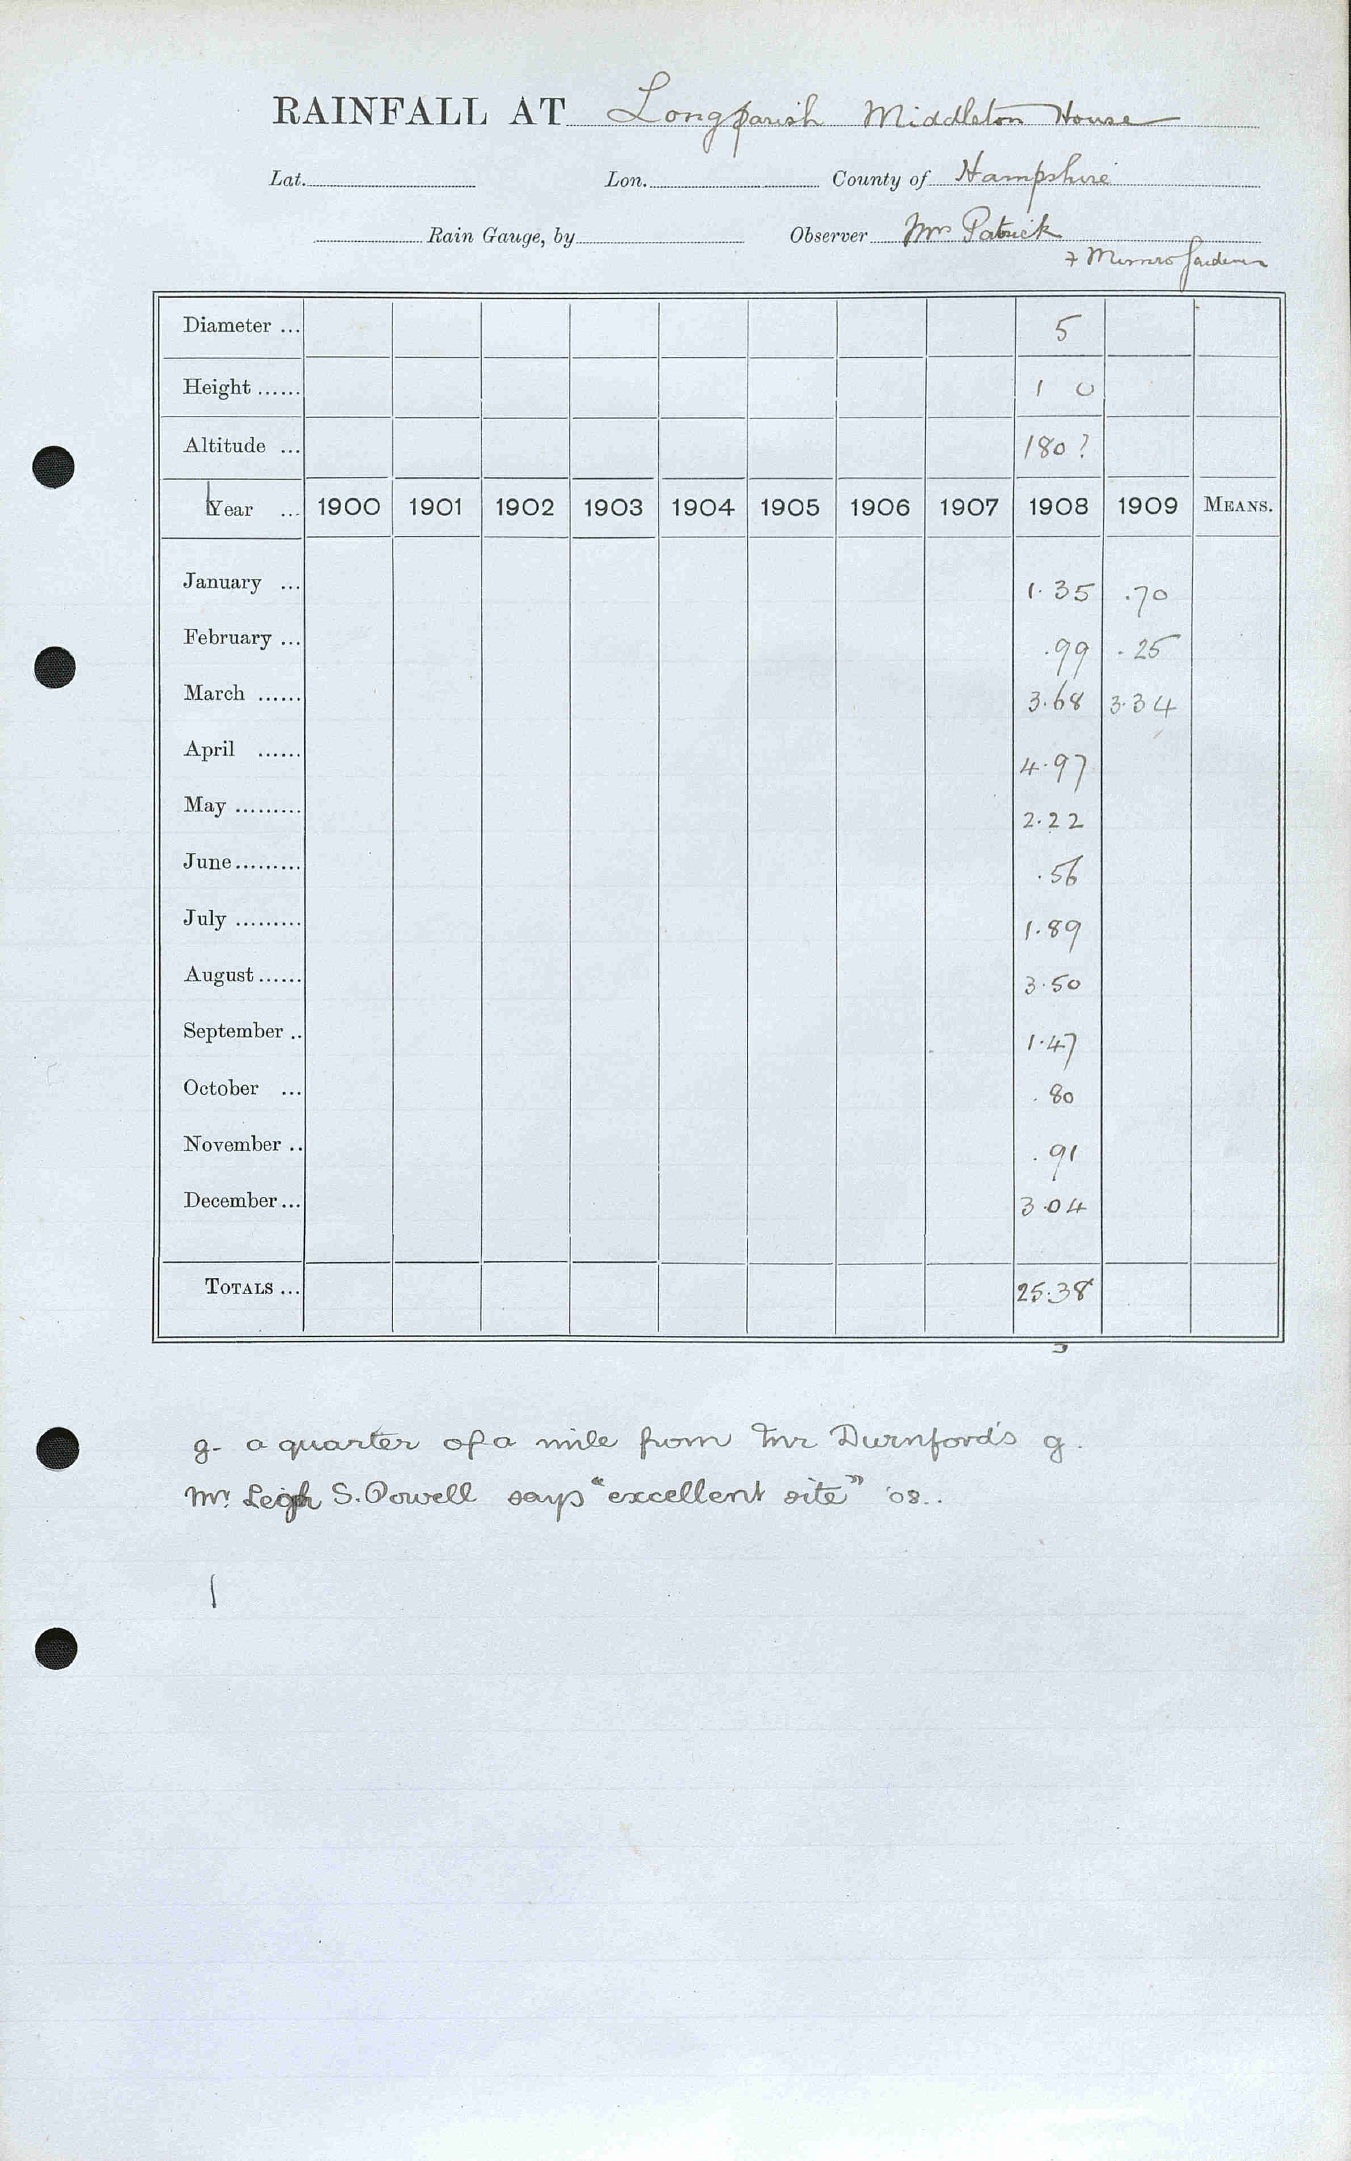 RAINFALL AT Longparish Middleton House
Lat. Lon. County of Hampshire
Rain Gauge, by Observer Mrs Patrick
Munro Gardener
Diameter ... 5
Height ...... 1 0
Altitude ... 180?
Year ... 1900 1901 1902 1903 1904 1905 1906 1907 1908 1909 MEANS.
January ... 1.35 .70
February ... .99 .25
March ...... 3.68 3.34
April ...... 4.97
May ......... 2.22
June ......... .56
July ......... 1.89
August ...... 3.50
September .. 1.47
October ... .80
November .. .91
December ... 3.04
TOTALS ... 25.38
g. a quarter of a mile from Mr Durnford's g.
Mr. Leigh S. Powell says "excellent site" '08.